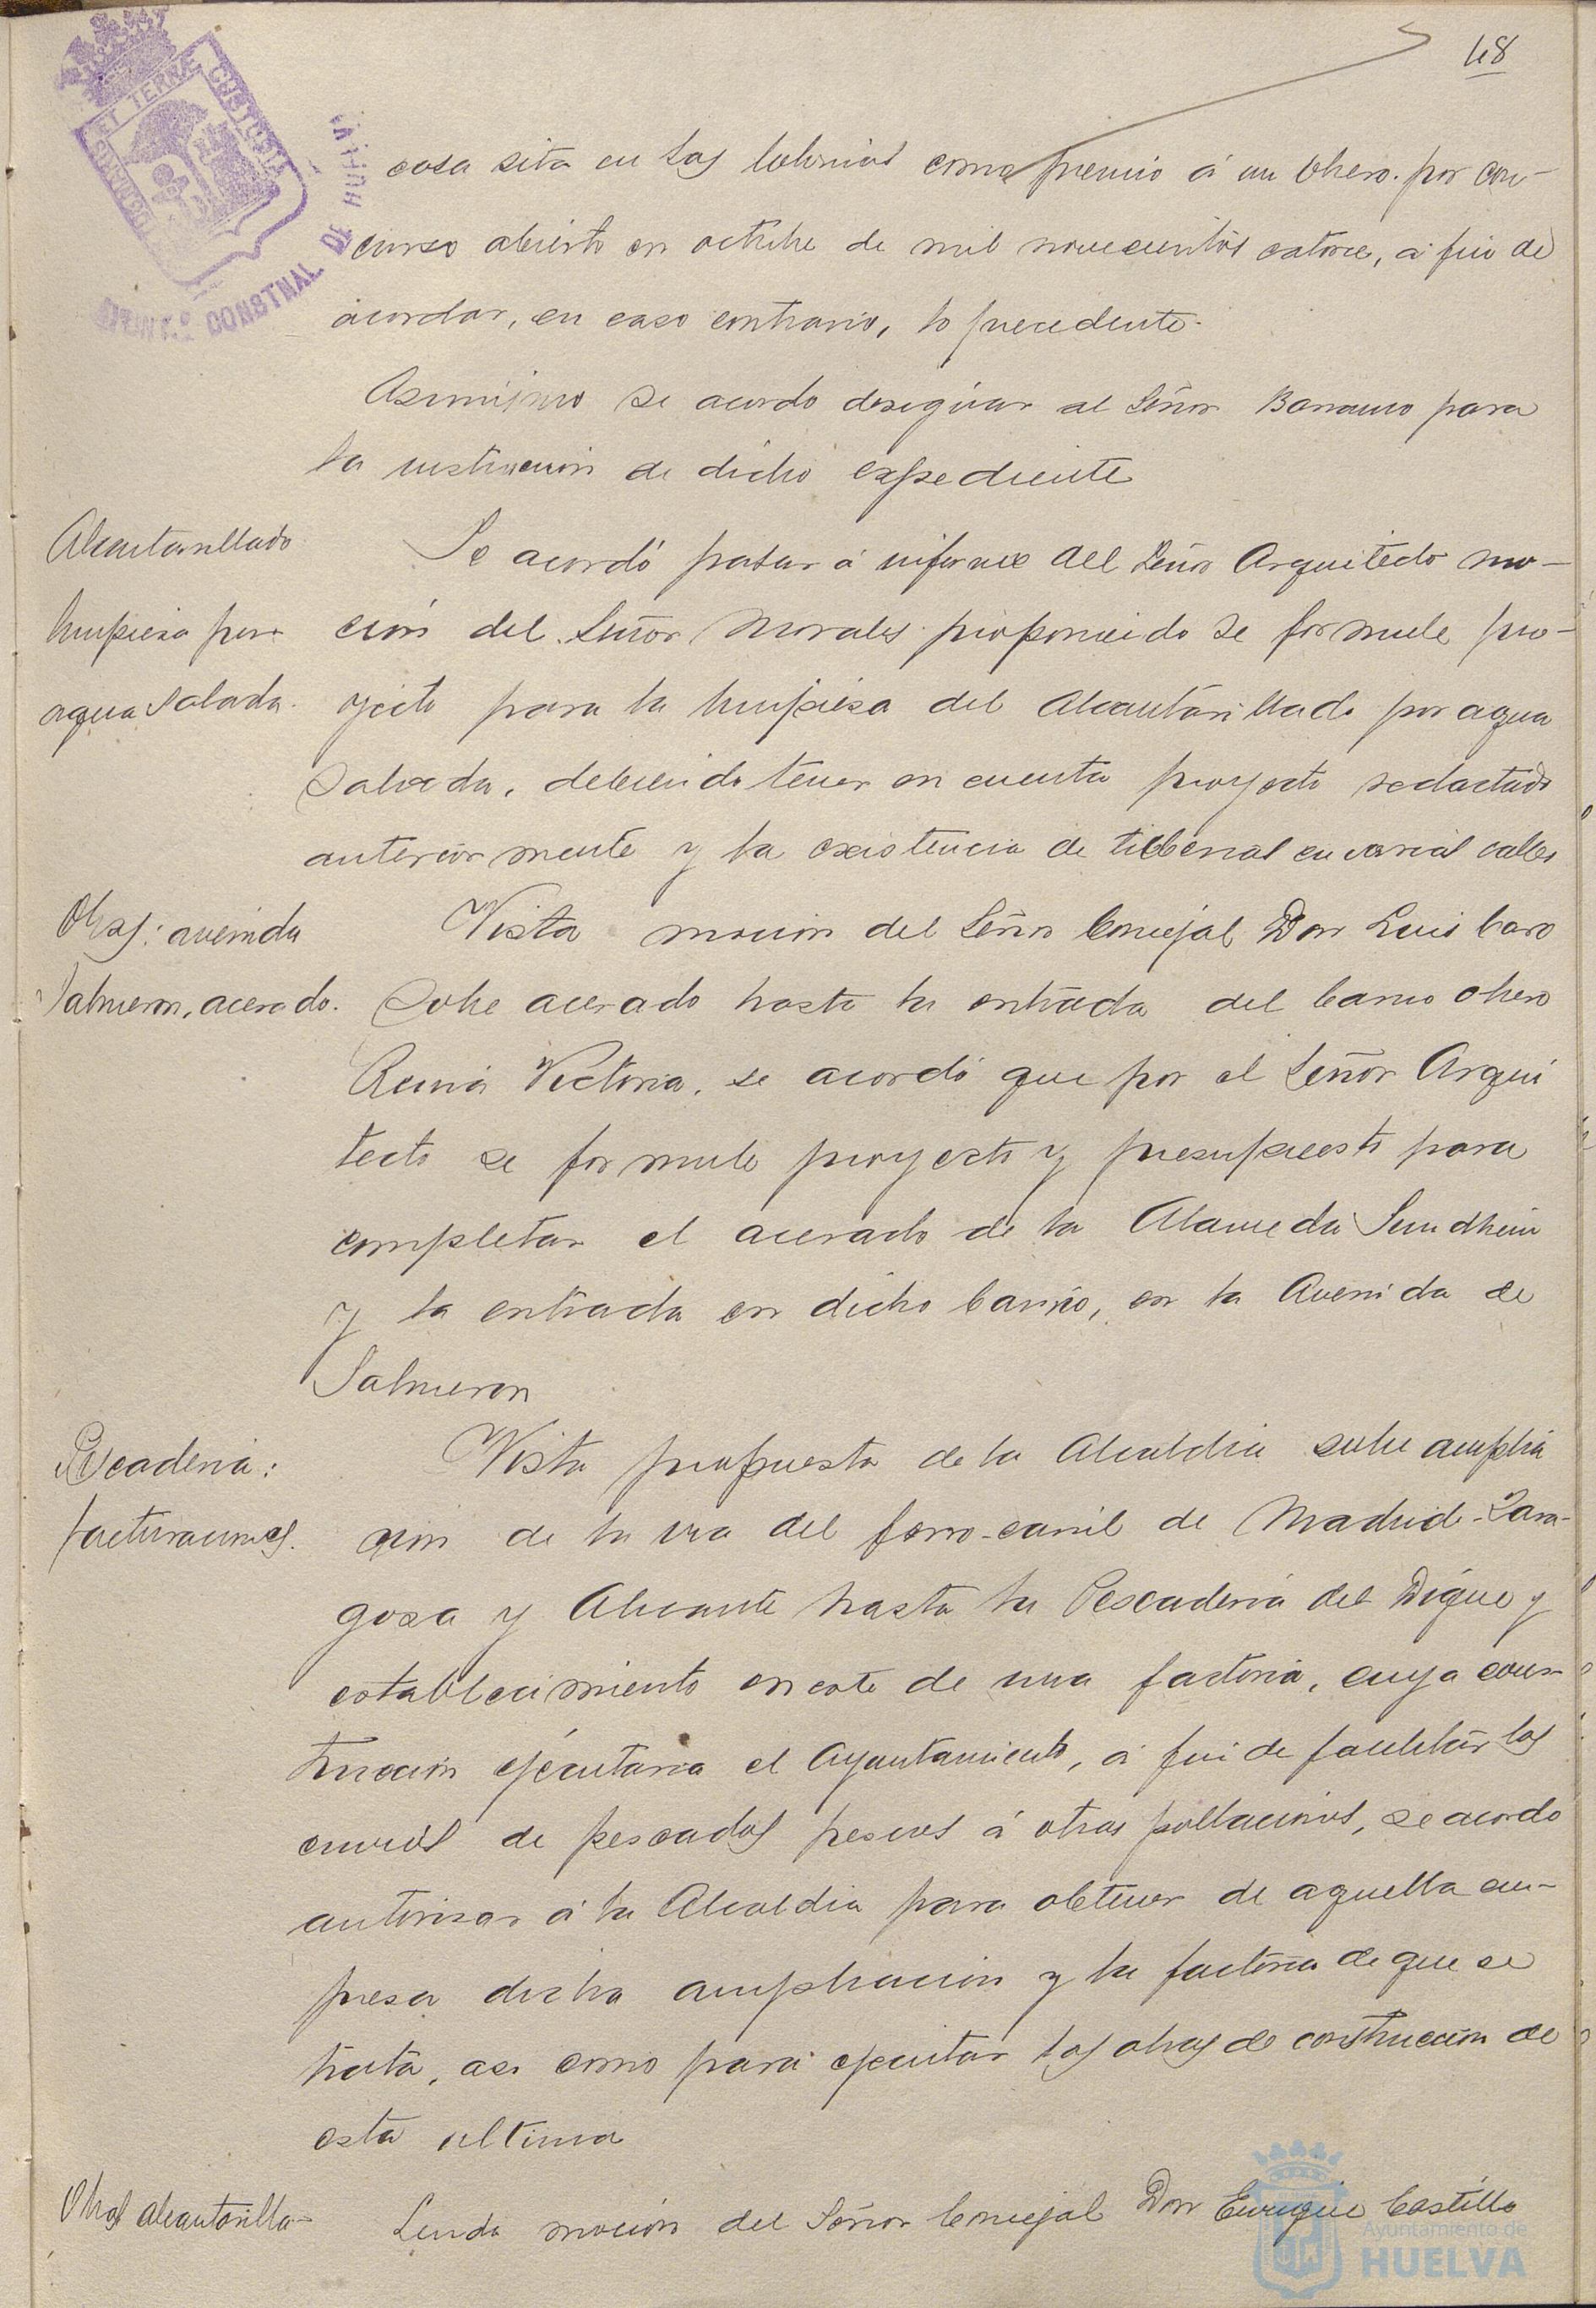 48
PORTUS MARIS ET TERRÆ CUSTODIA
AYUNT.º CONSTNAL DE HUELVA
casa sita en las Colonias como premio á un Obrero por con-
curso abierto en octubre de mil novecientos catorce, á fin de
acordar, en caso contrario, lo procedente.
Asimismo se acordo designar al Señor Barranco para
la instrucción de dicho expediente
Alcantarillado
limpieza por
agua salada.
Se acordó pasar á informe del Señor Arquitecto mo-
ción del Señor Morales proponiendo se formule pro-
yecto para la limpieza del Alcantarillado por agua
salada, debiendo tener en cuenta proyecto redactado
anteriormente y la existencia de tuberias en varias calles
Obras: avenida
Salmeron, acerado.
Vista moción del Señor Concejal Don Luis Caro
sobre acerado hasta la entrada del barrio obrero
Reina Victoria, se acordó que por el Señor Arqui
tecto se formule proyecto y presupuesto para
completar el acerado de la Alameda Sundheim
y la entrada en dicho barrio, en la Avenida de
Salmeron
Pescaderia:
facturaciones.
Vista propuesta de la Alcaldia sobre amplia
ción de la via del ferro-carril de Madrid-Zara-
goza y Alicante hasta la Pescaderia del Dique y
establecimiento en este de una factoria, cuya cons-
trucción ejecutaria el Ayuntamiento, á fin de facilitar los
envios de pescados frescos á otras poblaciones, se acordo
autorizar á la Alcaldia para obtener de aquella em-
presa dicha ampliación y la factoria de que se
trata, asi como para ejecutar las obras de construccion de
esta ultima
Obras alcantarilla-
Leida moción del Señor Concejal Don Enrique Castillo
Ayuntamiento de
HUELVA